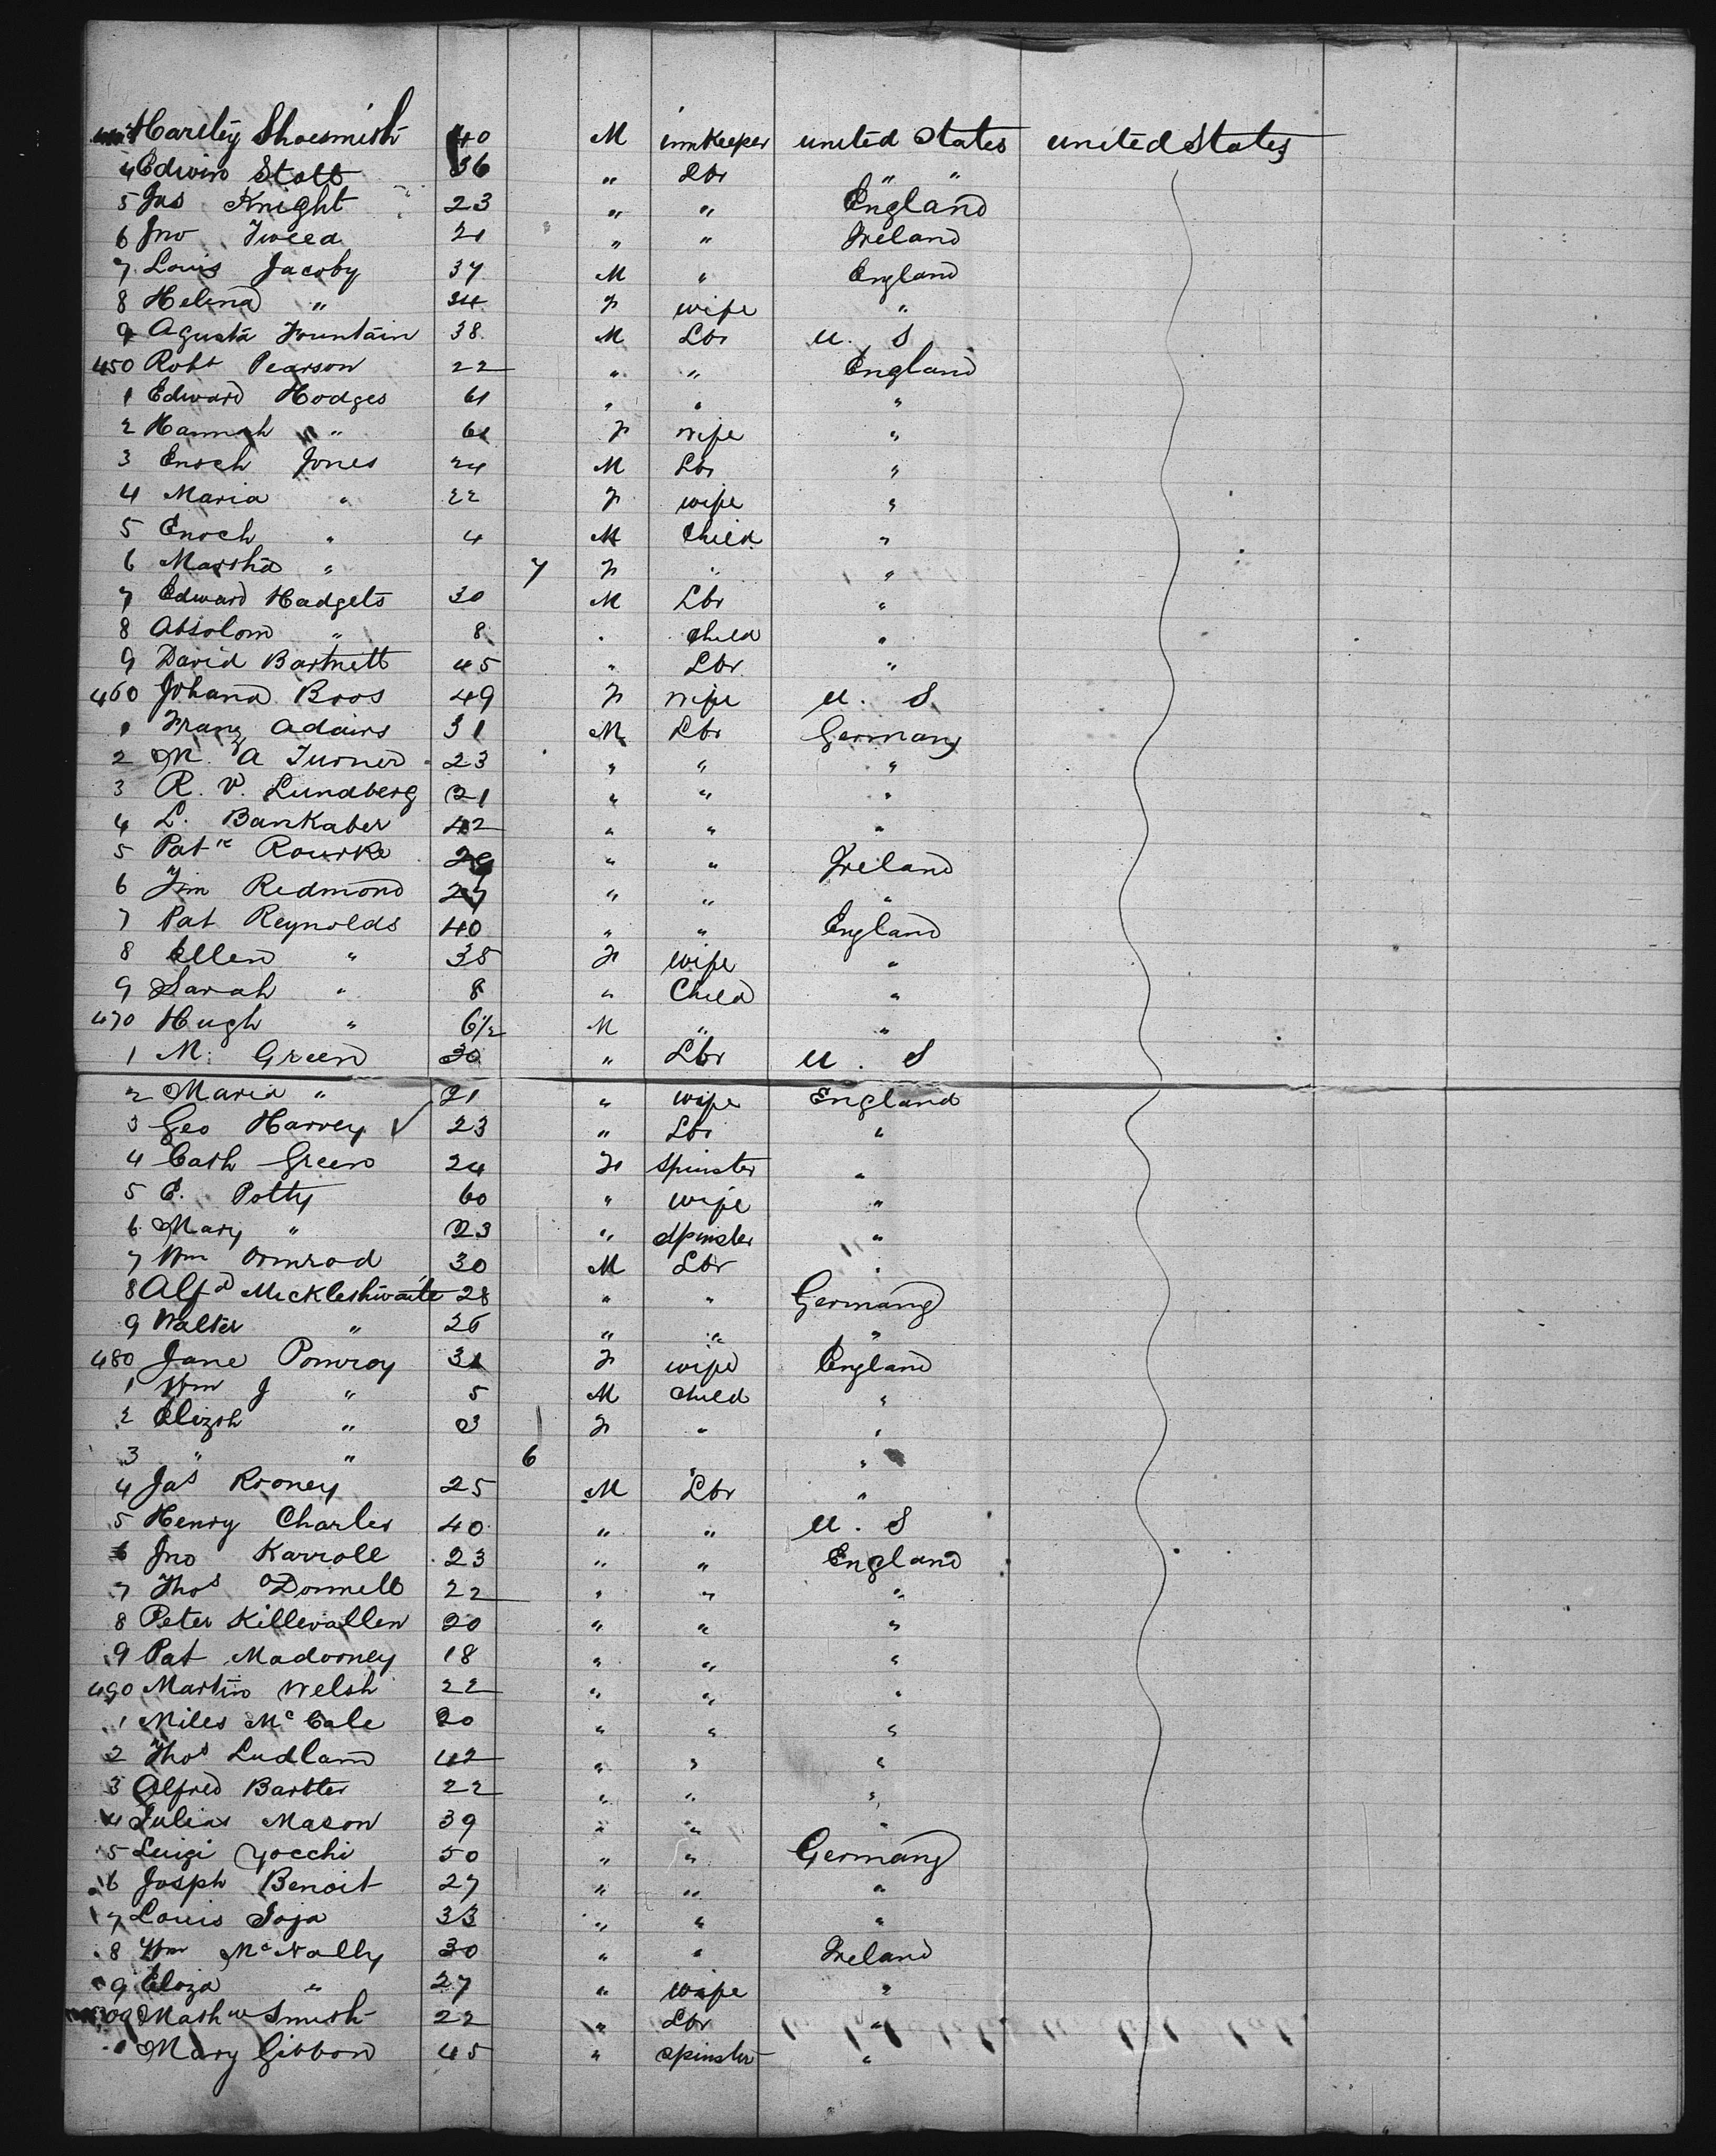 Hartley Shoesmith 40 M innkeeper united States united States
4 Edwin Stott 36 " Lbr " "
5 Jas Knight 23 " " England
6 Jno Tweed 21 " " Ireland
7 Louis Jacoby 37 M " England
8 Helena " 34 F wife "
9 Agusta Fountain 38 M Lbr U. S
450 Robt Pearson 22 " " England
1 Edward Hodges 61 " " "
2 Hannah " 61 F wife "
3 Enoch Jones 24 M Lbr "
4 Maria " 22 F wife "
5 Enoch " 4 M Child "
6 Martha " 7 F " "
7 Edward Hadgets 30 M Lbr "
8 Absolom " 8 " child "
9 David Bartnett 45 " Lbr "
460 Johana Boos 49 F wife U. S.
1 Franz Adairs 31 M Lbr Germany
2 M. A Turner 23 " " "
3 R. V. Lundberg 21 " " "
4 L. Bankaber 42 " " "
5 Patk Rourke 29 " " Ireland
6 Jim Redmond 27 " " "
7 Pat Reynolds 40 " " England
8 Ellen " 38 F wife "
9 Sarah " 8 " Child "
470 Hugh " 6½ M " "
1 M. Green 30 " Lbr U. S
2 Maria " 21 " wife England
3 Geo Harvey ✓ 23 " Lbr "
4 Cath Green 24 F Spinster "
5 E. Potty 60 " wife "
6 Mary " 23 " Spinster "
7 Wm Ormrod 30 M Lbr "
8 Alfd Mickleshwaite 28 " " Germany
9 Walter " 26 " " "
480 Jane Pomroy 31 F wife England
1 Wm J " 5 M child "
2 Elizth " 3 F " "
3 " " 6 "
4 Jas Rooney 25 M Lbr "
5 Henry Charles 40 " " U. S
6 Jno Karroll 23 " " England
7 Thos ODonnell 22 " " "
8 Peter Killevallen 20 " " "
9 Pat Madorney 18 " " "
490 Martin Welsh 22 " " "
1 Miles Mc Cale 20 " " "
2 Thos Ludlam 42 " " "
3 Alfred Bartter 22 " " "
4 Julias Mason 39 " " "
5 Luigi Yocchi 50 " " Germany
6 Josph Benoit 27 " " "
7 Louis Soja 33 " " "
8 Wm McNally 30 " " Ireland
9 Eliza " 27 " wife "
00 Mathw Smith 22 " Lbr "
1 Mary Gibbon 45 " spinster "